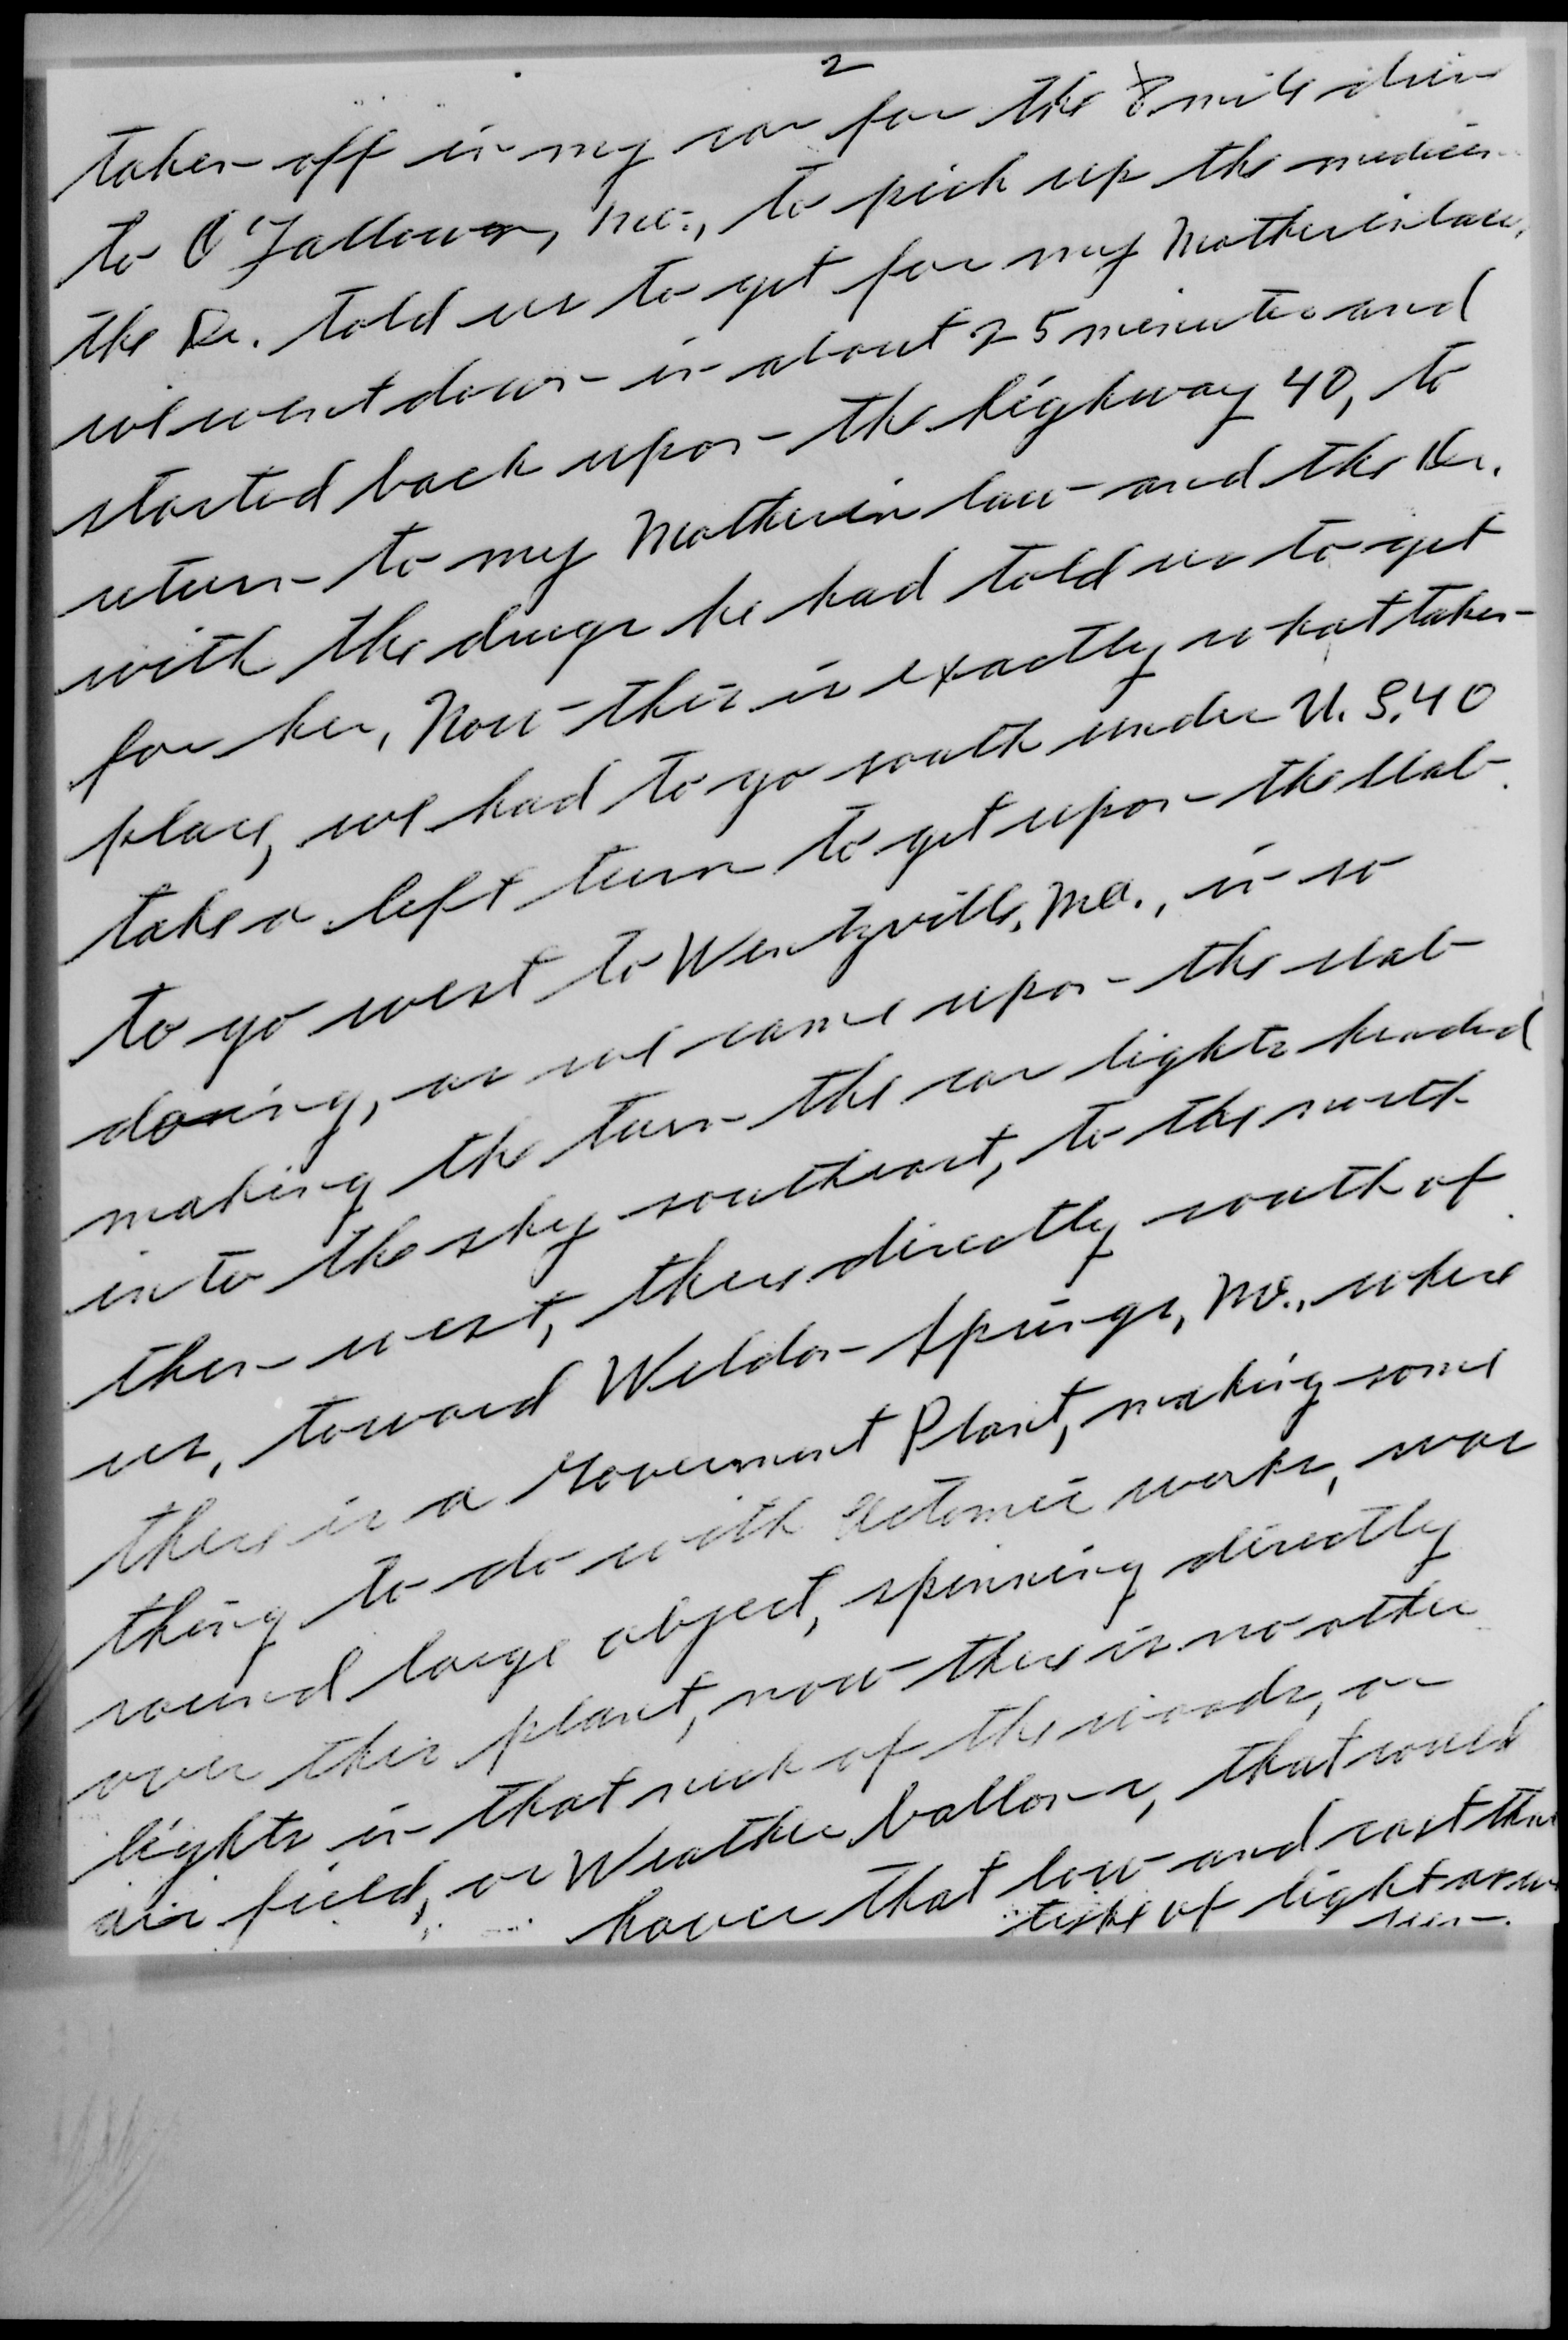 2
taken off in my car for the 8 mile drive
to O'Fallowon, Mo., to pick up the medicin
the Dr. told us to get for my Motherinlaw,
we went down in about 25 minutes and
started back upon the highway 40, to
return to my Motherin law and the Dr.
with the drugs he had told us to get
for her, Now this is exactly what taken
place, we had to go south under U.S. 40
take a left turn to get upon the slab
to go west to Wentzville, Mo., in so
doing, as we came upon the slab
making the turn the car lights headed
into the sky southeast, to the south
then west, there directly south of
us, toward Weldon Springs, Mo., where
there is a Government Plant, making some
thing to do with Actomic works, was
round large object, spinning directly
over this plant, now there is no other
lights in that neck of the woods, or
air field, or Weather ballons, that could
hover that low and cast that
tipe of light as we
seen.